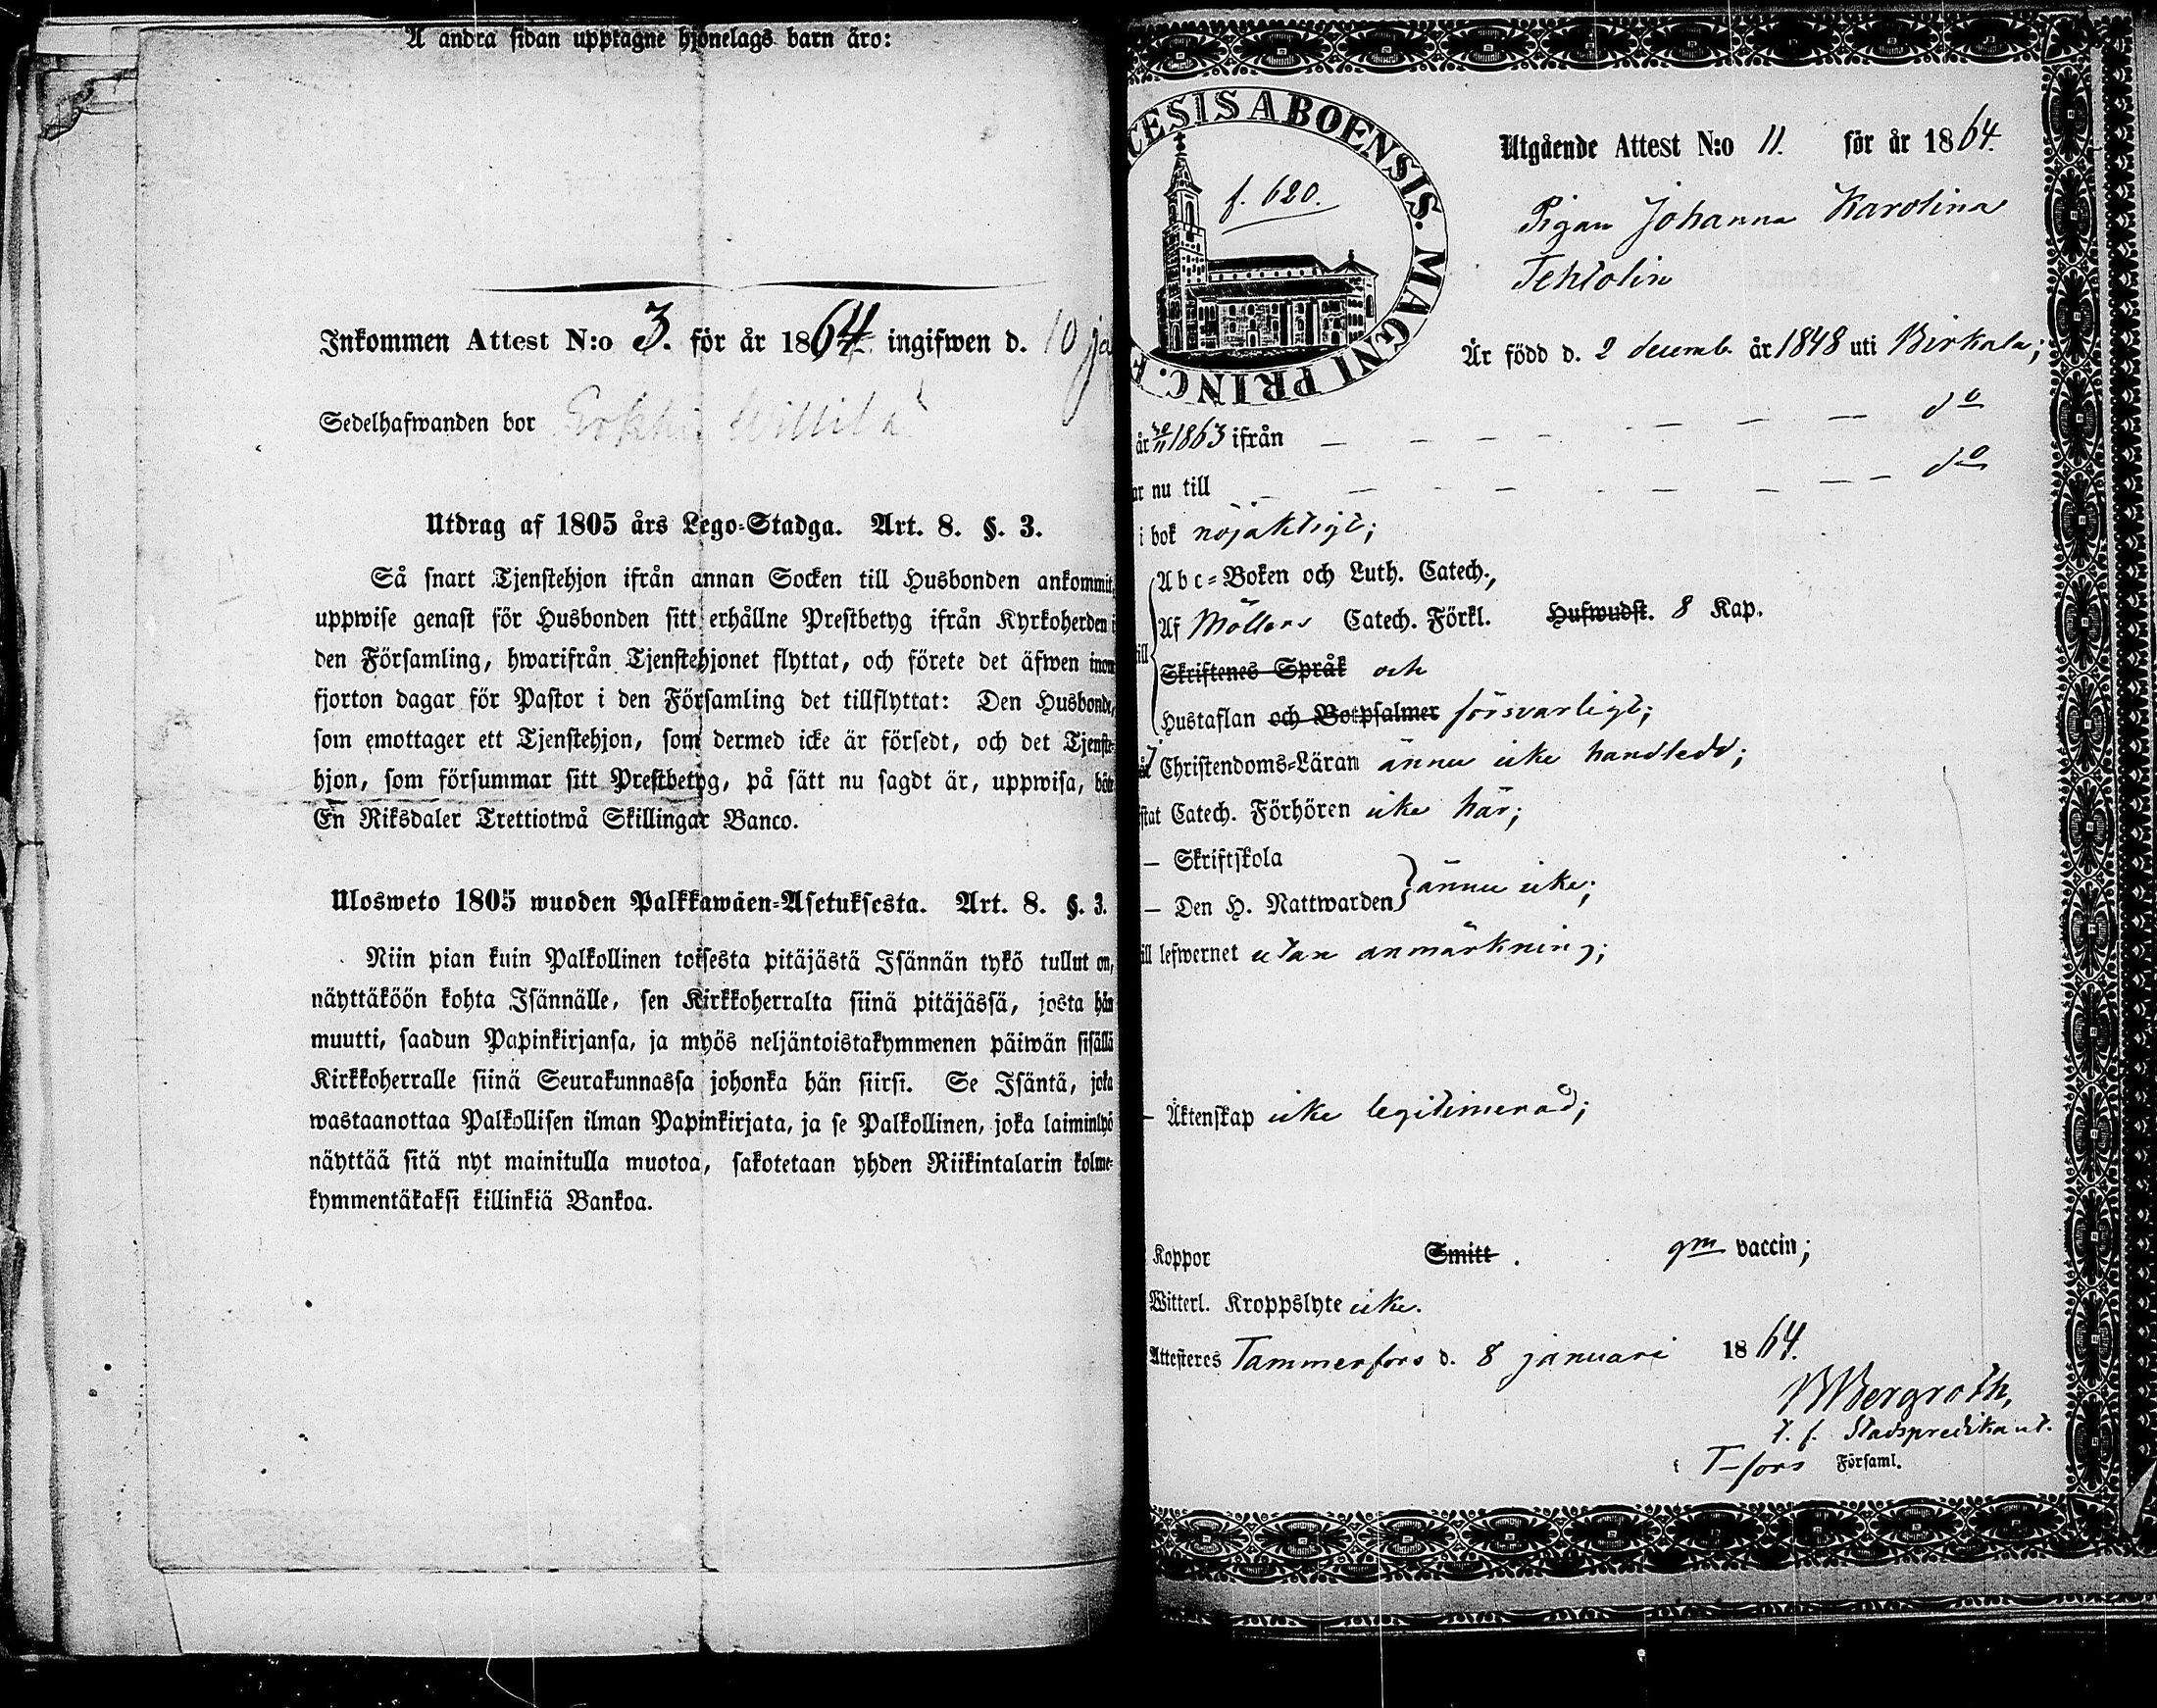 Å andra sidan upptagne hjonelags barn äro:
Inkommen Attest N:o 3. för år 1864 ingifwen d. 10 ja
Sedelhafwanden bor
Utdrag af 1805 års Lego-Stadga. Art. 8. §. 3.
Så snart Tjenstehjon ifrån annan Socken till Husbonden ankommit,
uppwise genast för Husbonden sitt erhållne Prestbetyg ifrån Kyrkoherden i
den Församling, hwarifrån Tjenstehjonet flyttat, och förete det äfwen inom
fjorton dagar för Pastor i den Församling det tillflyttat: Den Husbonde,
som emottager ett Tjenstehjon, som dermed icke är försedt, och det Tjenste-
hjon, som försummar sitt Prestbetyg, på sätt nu sagdt är, uppwisa, böte
En Riksdaler Trettiotwå Skillingar Banco.
Ulosweto 1805 wuoden Palkkawäen-Asetuksesta. Art. 8. §. 3.
Niin pian kuin Palkollinen toisesta pitäjästä Isännän tykö tullut on,
näyttäköön kohta Isännälle, sen Kirkkoherralta siinä pitäjässä, josta hän
muutti, saadun Papinkirjansa, ja myös neljäntoistakymmenen päiwän sisällä
Kirkkoherralle siinä Seurakunnassa johonka hän siirsi. Se Isäntä, joka
wastaanottaa Palkollisen ilman Papinkirjata, ja se Palkollinen, joka laiminlyö
näyttää sitä nyt mainitulla muotoa, sakotetaan yhden Riikintalarin kolme-
kymmentäkaksi killinkiä Bankoa.
CESIS ABOENSIS. MAGNI PRINC. F
f. 620.
Utgående Attest N:o 11. för år 1864.
Pigan Johanna Karolina
Tehtolin
Är född d. 2 decemb. år 1848 uti Birkala;
år 30/11 1863 ifrån — — — — — — — do
ar nu till — — — — — — — — do
i bok nöjaktigt;
Abc-Boken och Luth. Catech.,
Af Möllers Catech. Förkl. Hufwudst. 8 Kap.
till
Skriftenes Språk och
Hustaflan och Botpsalmer försvarligt;
Christendoms-Läran ännu icke handledd;
stat Catech. Förhören icke här;
— Skriftskola
— Den H. Nattwarden } ännu icke;
ill lefwernet utan anmärkning;
— Äktenskap icke legitimerad;
Koppor Smitt. gm vaccin;
Witterl. Kroppslyte icke.
Attesteres Tammerfors d. 8 januari 1864.
Bergroth,
t. f. Stadspredikant.
i T-fors Församl.